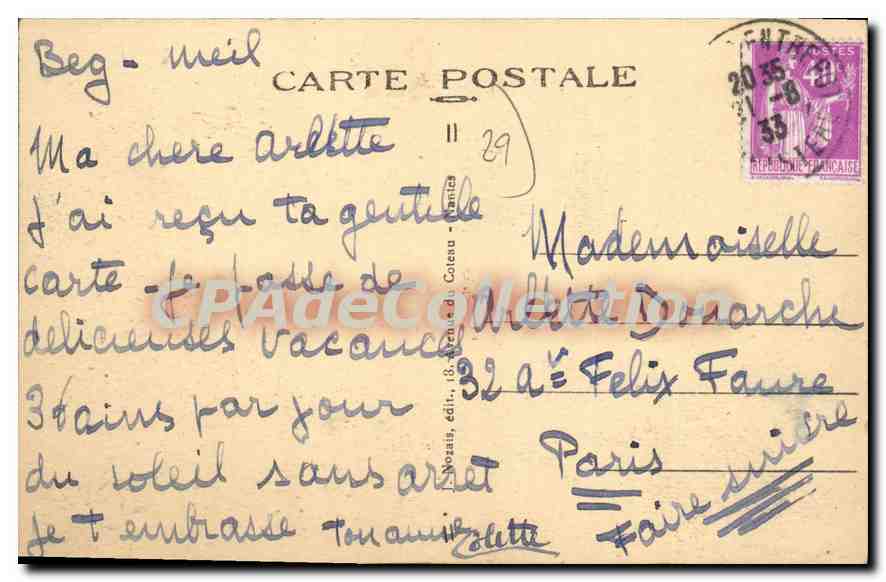 Beg-Meil
CARTE POSTALE
Ma chere Arlette
J'ai reçu ta gentille
carte je passe de
delicieuses vacances
3 bains par jour
du soleil sans arret
je t'embrasse ton amie Colette
29
J. Nozais, édit., 13, Avenue du Coteau - Nantes
20 35
21 -8
33
POSTES
REPUBLIQUE FRANÇAISE
Mademoiselle
Arlette
32 Av Felix Faure
Paris
Faire suivre
CPAdeCollection